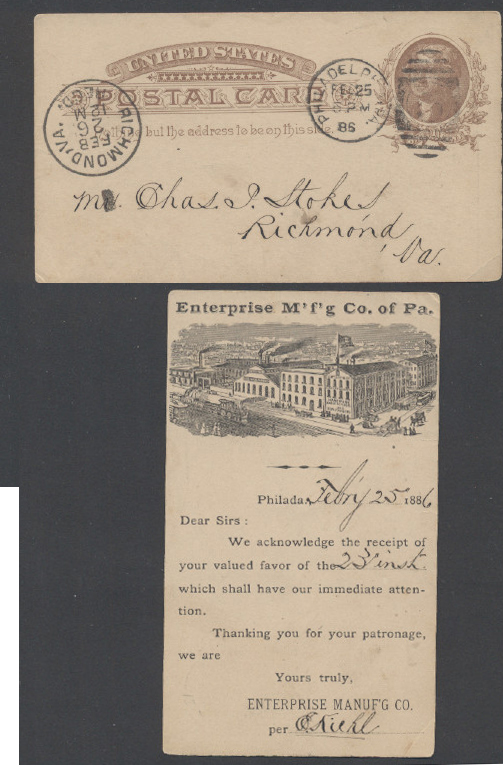 UNITED STATES
POSTAL CARD
Nothing but the address to be on this side.
RICHMOND, VA.
FEB
26
8
PHILADELPHIA, PA.
FEB 25
PM
86
Mr. Chas. J. Stokes
Richmond,
Va.
Enterprise M'f'g Co. of Pa.
Philada, Feb'ry 25 1886
Dear Sirs:
We acknowledge the receipt of
your valued favor of the 23 inst.
which shall have our immediate atten-
tion.
Thanking you for your patronage,
we are
Yours truly,
ENTERPRISE MANUF'G CO.
per